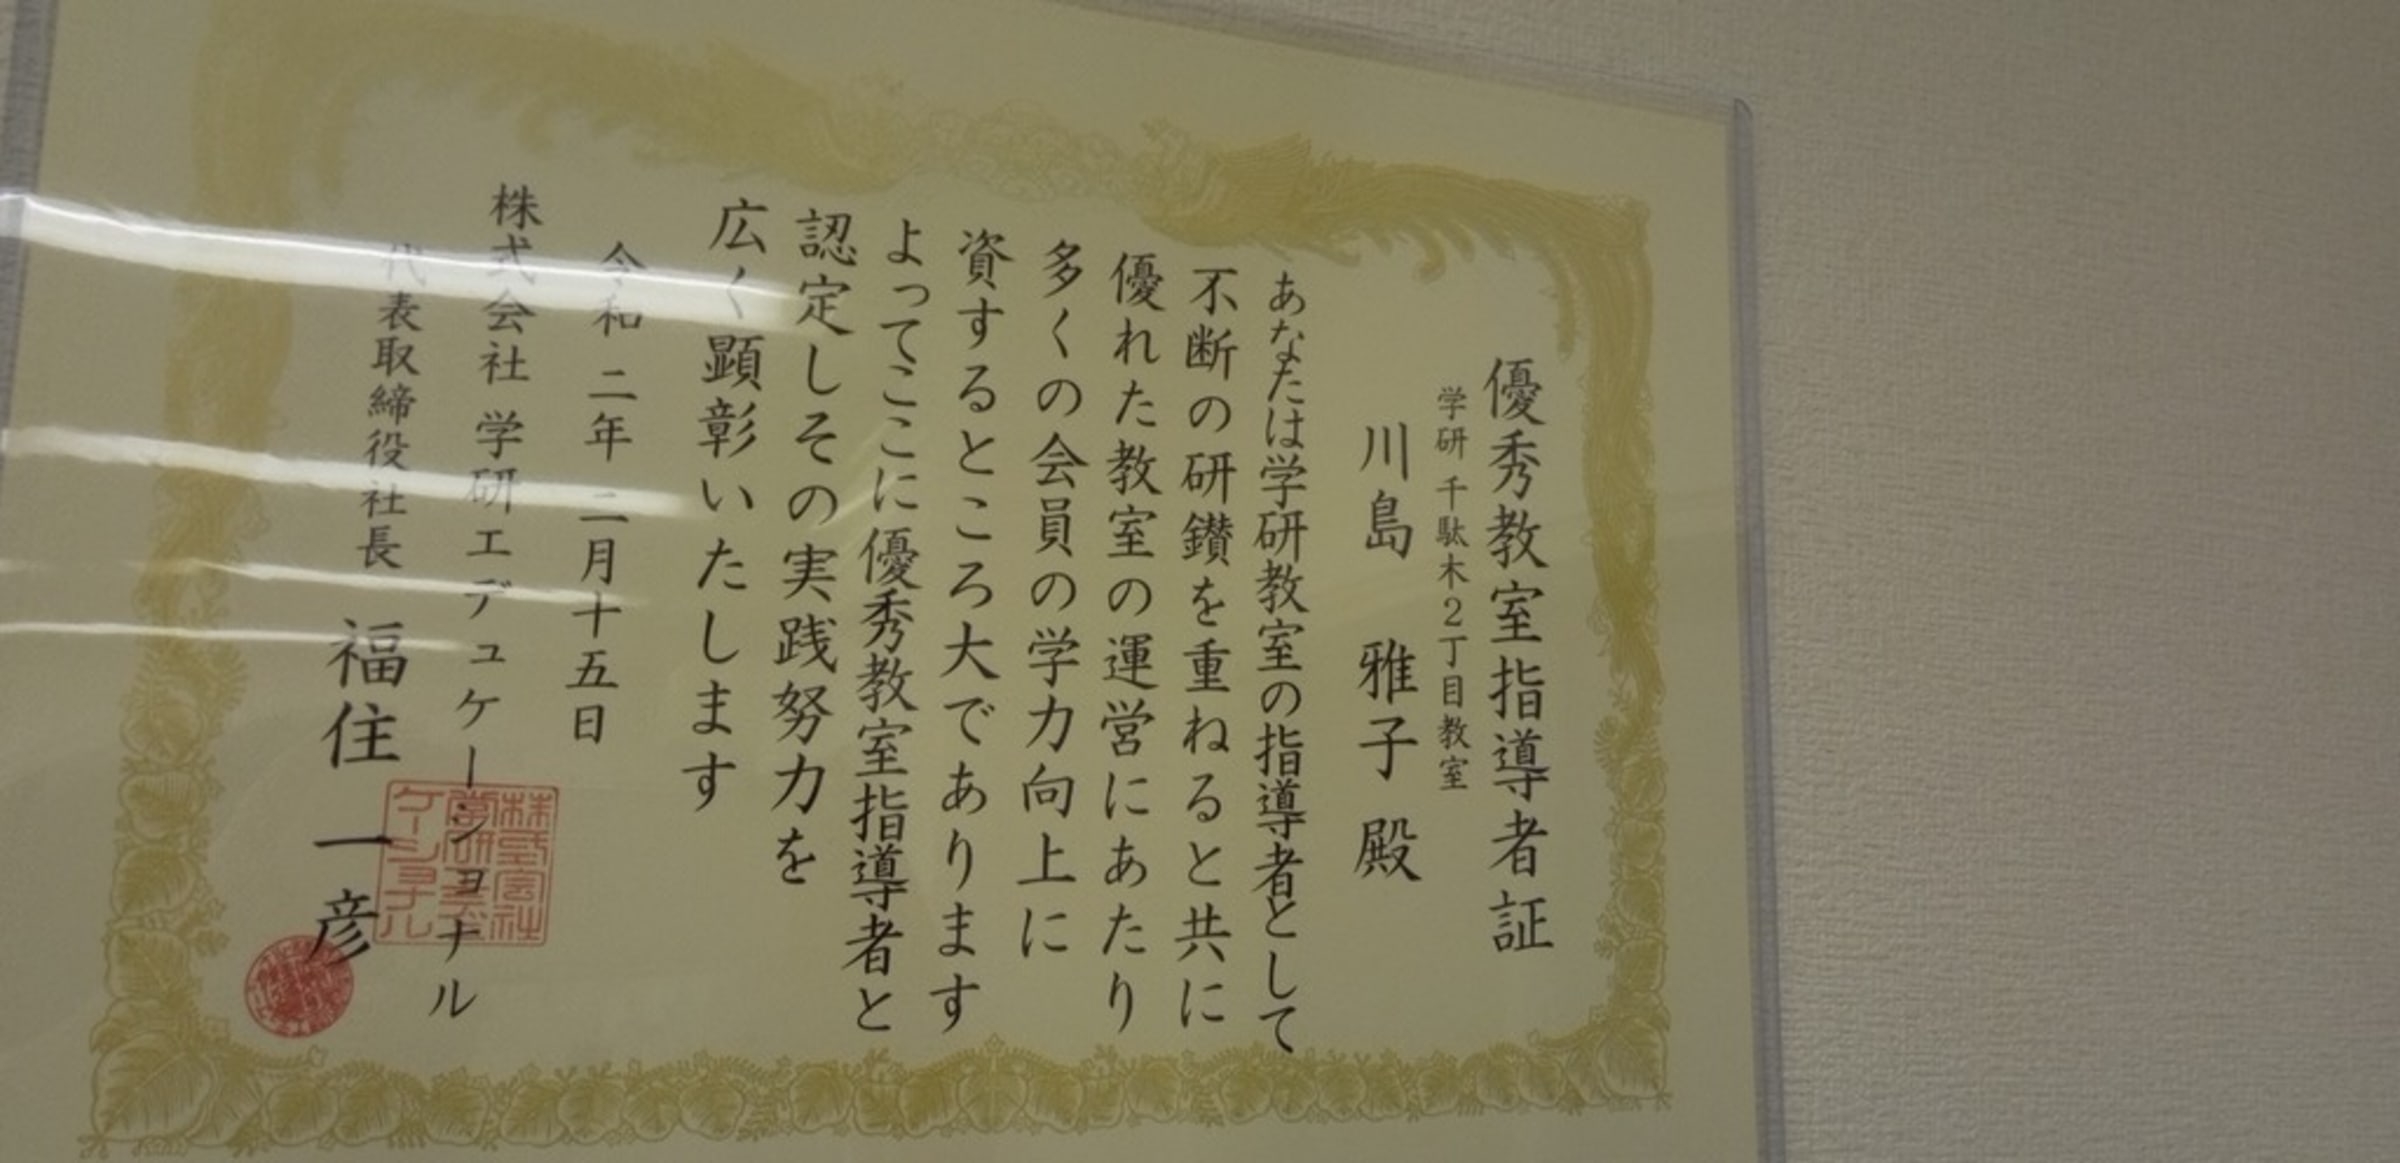 優秀教室指導者証
学研 千駄木2丁目教室
川島 雅子 殿
あなたは学研教室の指導者として
不断の研鑚を重ねると共に
優れた教室の運営にあたり
多くの会員の学力向上に
資するところ大であります
よってここに優秀教室指導者と
認定しその実践努力を
広く顕彰いたします
令和 二年 二月十五日
株式会社 学研エデュケーショナル
代表取締役社長 福住 一彦